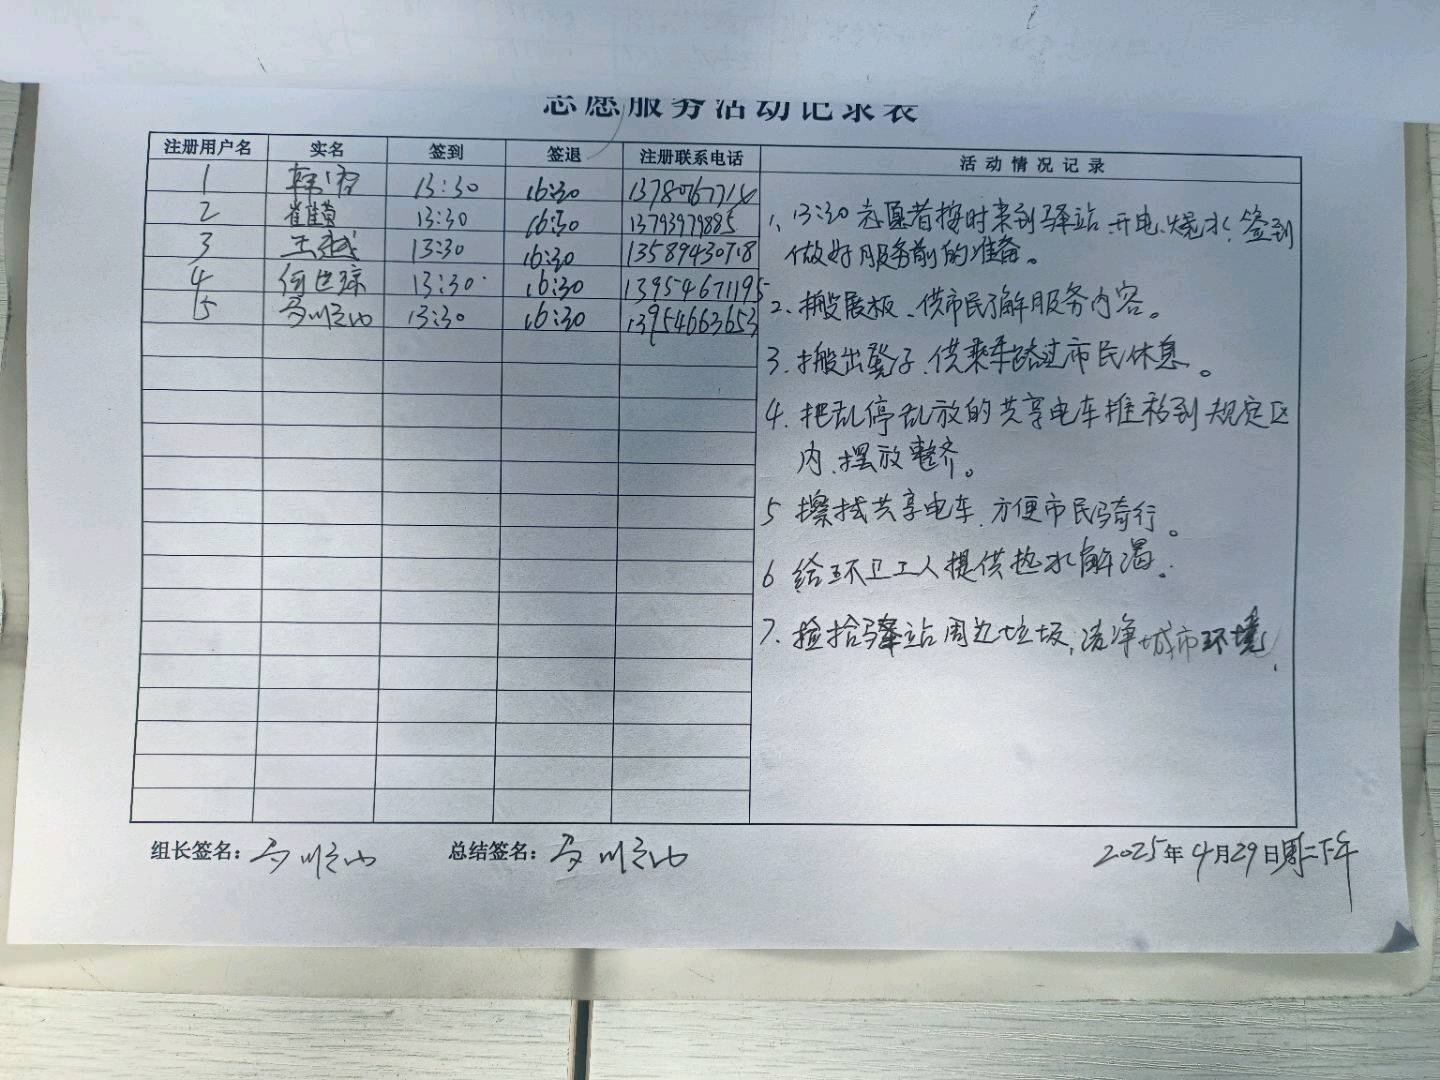 志愿服务活动记录表
注册用户名 实名 签到 签退 注册联系电话 活动情况记录
1 13:30 16:30
2 13:30 16:30 13793979885
3 王越 13:30 16:30 13589430718
4 何世琼 13:30 16:30 13954671195
5 13:30 16:30 13954663653
1、13:30志愿者按时来到驿站、开电、烧水、签到
做好服务前的准备。
2、搬展板、供市民了解服务内容。
3、搬出凳子、供乘车路过市民休息。
4、把乱停乱放的共享电车推移到规定区
内、摆放整齐。
5 擦拭共享电车、方便市民骑行。
6 给环卫工人提供热水解渴.
7、捡拾驿站周边垃圾,洁净城市环境.
组长签名: 总结签名: 2025年4月29日周二下午